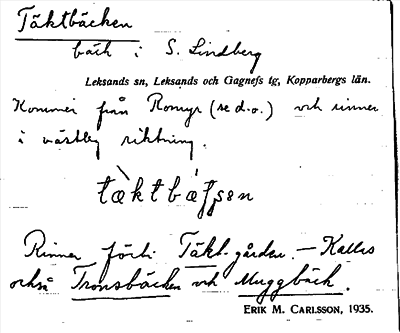 Täktbäcken
bäck i S. Lindberg
Leksands sn, Leksands och Gagnefs tg, Kopparbergs län.
Kommer från Romyr (se d.o.) och rinner
i västlig riktning.
Rinner förbi Täkt-gården. — Kallas
också Tronsbäcken och Muggbäck.
ERIK M. CARLSSON, 1935.